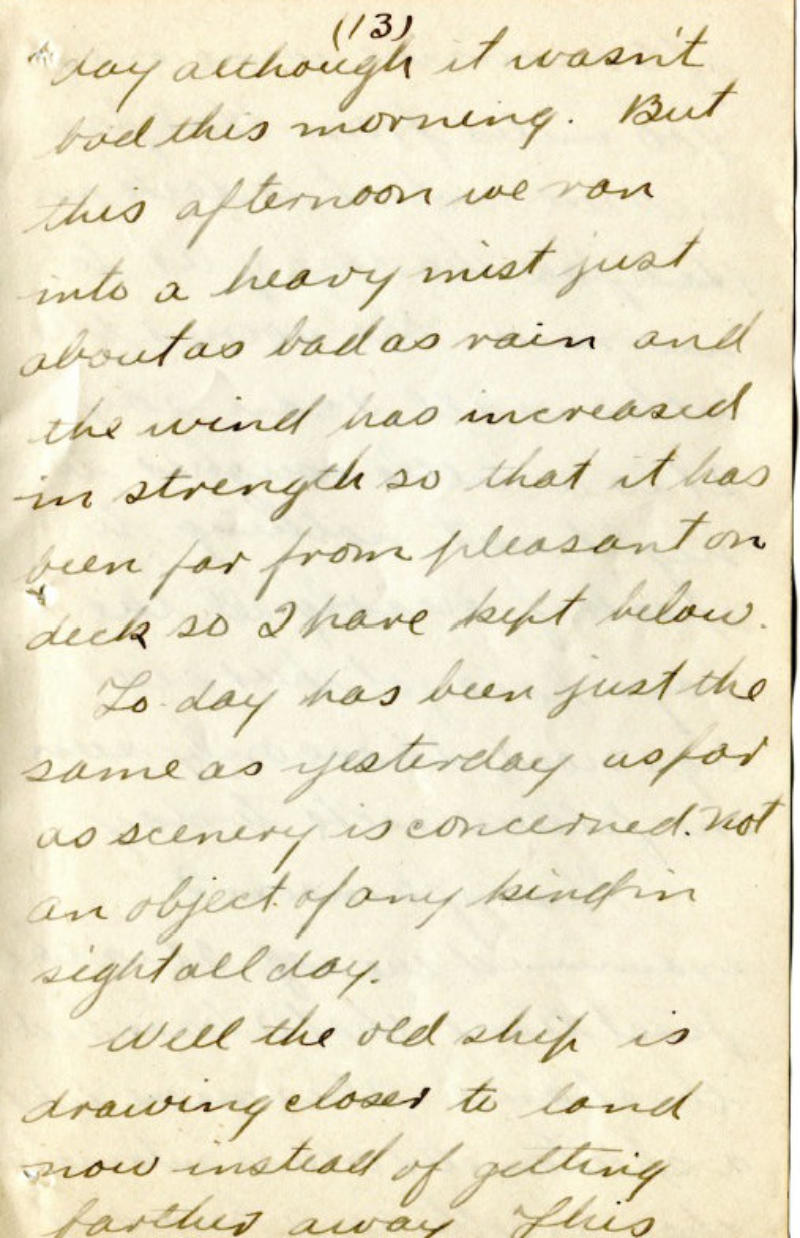 (13)
day although it wasn't
bad this morning. But
this afternoon we ran
into a heavy mist just
about as bad as rain and
the wind has increased
in strength so that it has
been far from pleasant on
deck so I have kept below.
To-day has been just the
same as yesterday as far
as scenery is concerned. Not
an object of any kind in
sight all day.
Well the old ship is
drawing closer to land
now instead of getting
farther away This